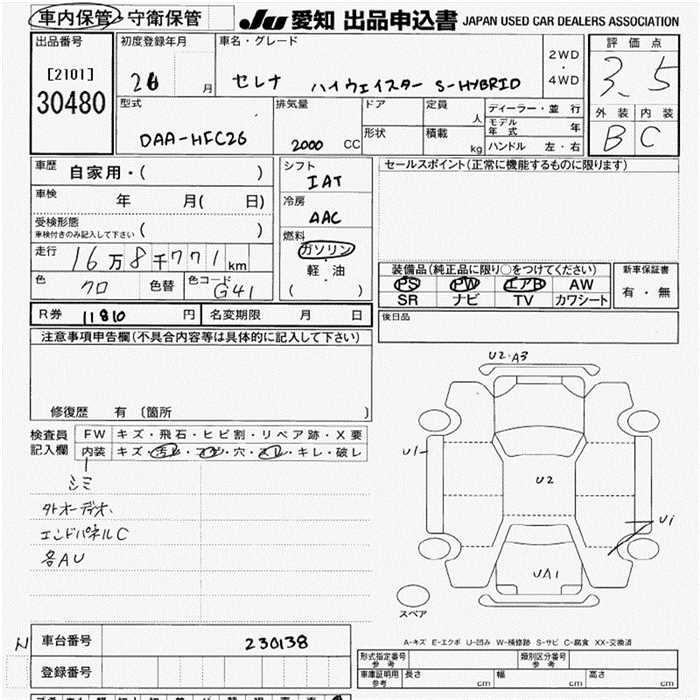 車内保管・守衛保管
JU 愛知 出品申込書 JAPAN USED CAR DEALERS ASSOCIATION
出品番号
[2101]
30480
初度登録年月
26 月
車名・グレード
セレナ ハイウェイスター S-HYBRID
2WD
・
4WD
評価点
3.5
外装 内装
B C
型式
DAA-HFC26
排気量
2000 CC
ドア
形状
定員
人
積載
kg
ディーラー・並行
モデル年式 年
ハンドル 左・右
車歴 自家用・( )
車検 年 月( 日)
受検形態
車検付きのみ記入して下さい ( )
走行 16万8千771km
色 クロ 色替 色コード G41
シフト
IAT
冷房
AAC
燃料
ガソリン
軽・油
( )
セールスポイント(正常に機能するものに限ります)
装備品(純正品に限り○をつけてください)
PS PW エアB AW
SR ナビ TV カワシート
新車保証書
有・無
R券 11810 円 名変期限 月 日
後日品
注意事項申告欄(不具合内容等は具体的に記入して下さい)
修復歴 有 〔箇所 〕
検査員記入欄
FW キズ・飛石・ヒビ割・リペア跡・X要
内装 キズ・汚レ・コゲ・穴・スレ・キレ・破レ
シミ
外オーディオ、
エンドパネルC
各AU
U2・A3
U1
U2
U1
UA1
スペア
A-キズ E-エクボ U-凹み W-補修跡 S-サビ C-腐食 XX-交換済
車台番号 230138
登録番号
形式指定番号 参考
類別区分番号 参考
車庫証明用 参考
長さ cm 幅 cm 高さ cm